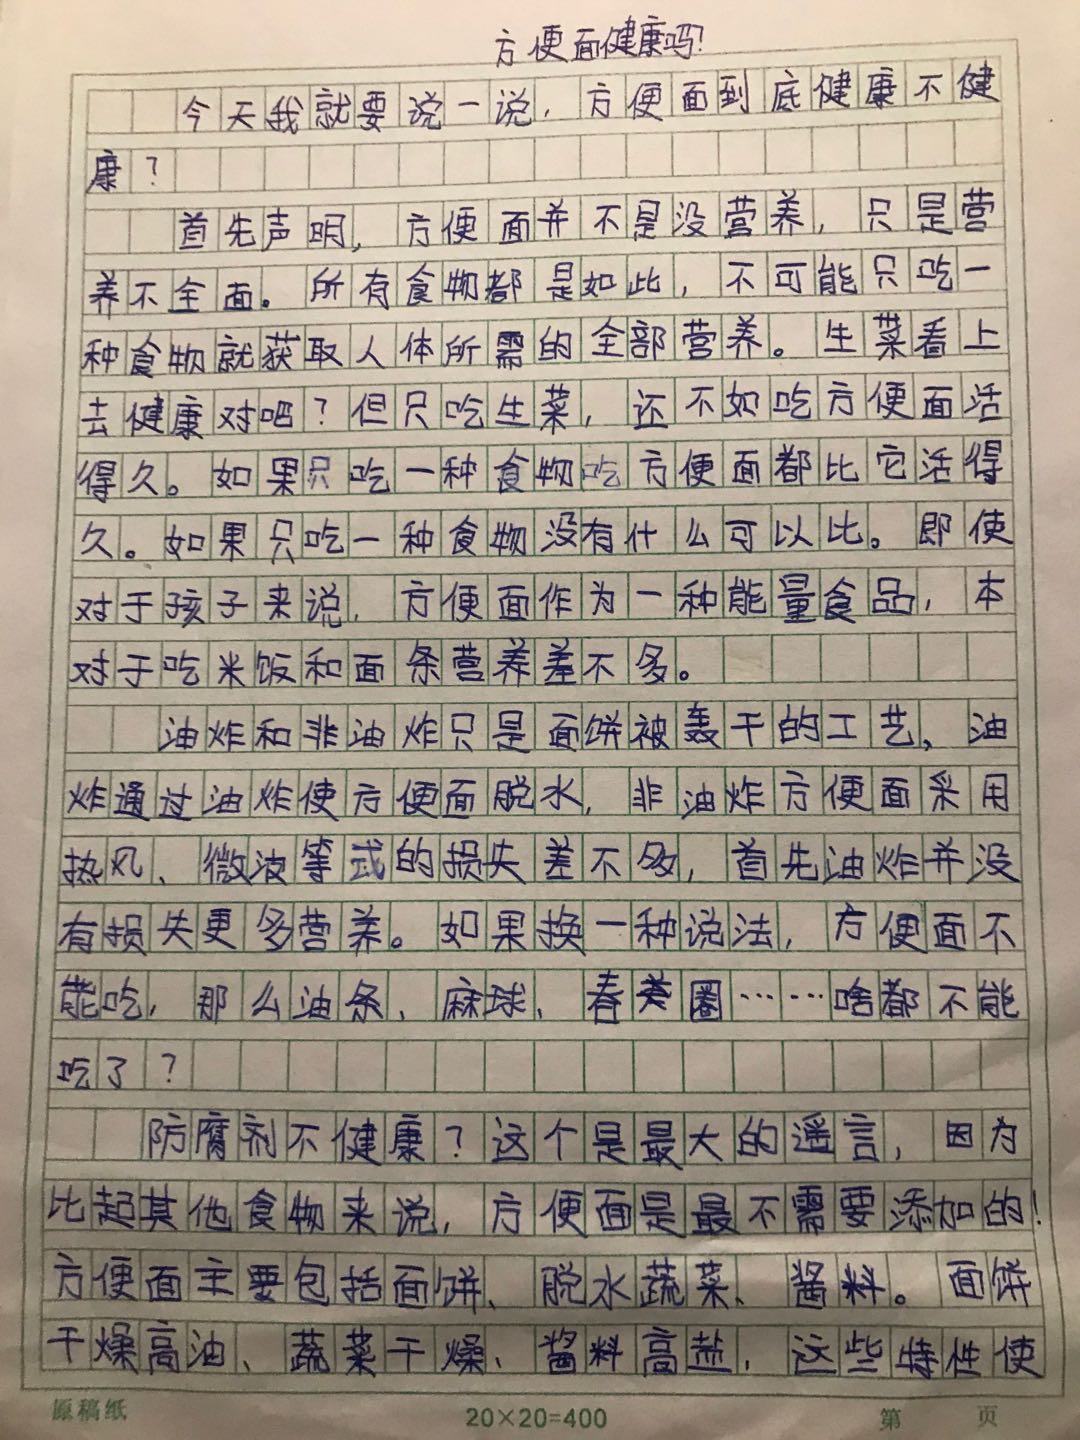 方便面健康吗?
今天我就要说一说，方便面到底健康不健
康？
首先声明，方便面并不是没营养，只是营
养不全面。所有食物都是如此，不可能只吃一
种食物就获取人体所需的全部营养。生菜看上
去健康对吧？但只吃生菜，还不如吃方便面活
得久。如果只吃一种食物吃方便面都比它活得
久。如果只吃一种食物没有什么可以比。即使
对于孩子来说，方便面作为一种能量食品，本
对于吃米饭和面条营养差不多。
油炸和非油炸只是面饼被轰干的工艺，油
炸通过油炸使方便面脱水，非油炸方便面采用
热风、微波等式的损失差不多，首先油炸并没
有损失更多营养。如果换一种说法，方便面不
能吃，那么油条、麻球、春卷圈……啥都不能
吃了？
防腐剂不健康？这个是最大的谣言，因为
比起其他食物来说，方便面是最不需要添加的！
方便面主要包括面饼、脱水蔬菜、酱料。面饼
干燥高油、蔬菜干燥、酱料高盐，这些特性使
原稿纸
20×20=400
第 页